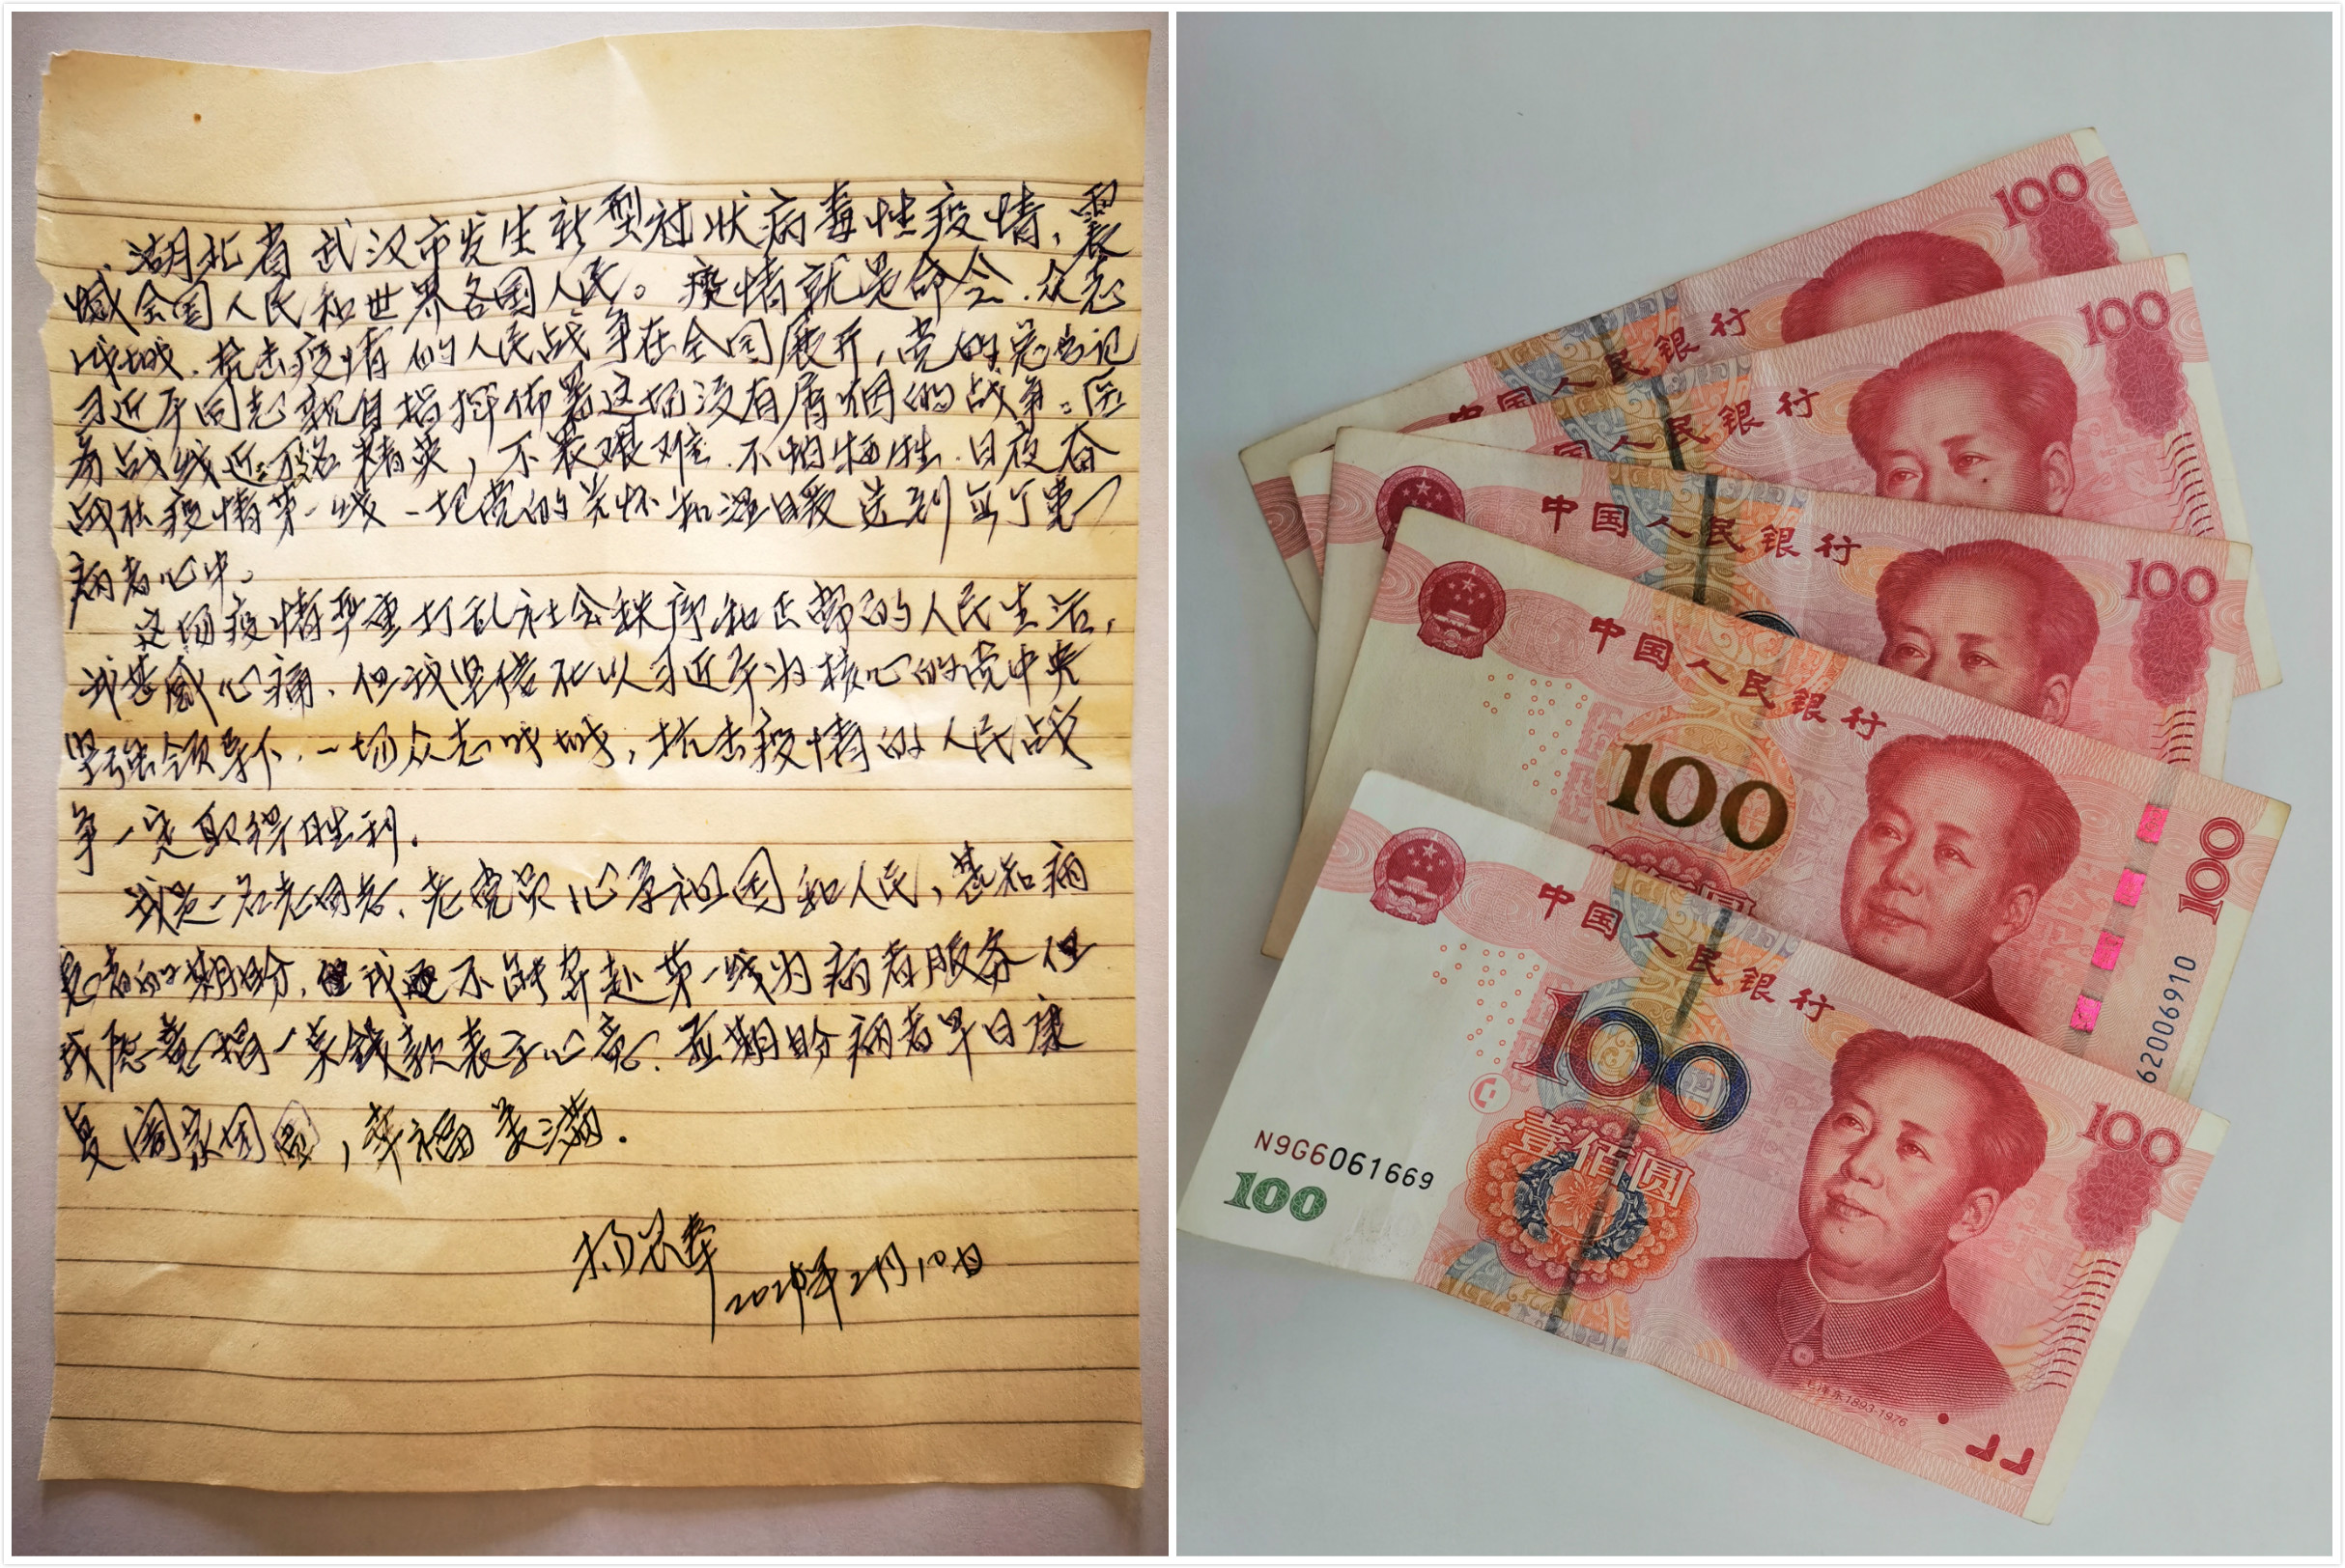 湖北省武汉市发生新型冠状病毒性疫情,震
憾全国人民和世界各国人民。疫情就是命令.众志
成城.抗击疫情的人民战争在全国展开,党的总书记
习近平同志亲自指挥佈署这场没有屑烟的战争。医
务战线近万名精英,不畏艰难.不怕牺牲.日夜奋
战在疫情第一线.把党的关怀和温暖送到每个患
病者心中。
这场疫情严重打乱社会秩序和正常的人民生活,
我甚感心痛.但我坚信在以习近平为核心的党中央
坚强领导下.一场众志成城,抗击疫情的人民战
争一定取得胜利.
我是一名老同志.老党员心系祖国和人民,甚知病
患者的期盼.但我不能奔赴第一线为病者服务但
我愿意捐一笔钱款表示心意.并期盼病者早日康
复阖家团圆,幸福美满.
2020年2月10日
100
中国人民银行
100
中国人民银行
100
中国人民银行
100
中国人民银行
100
100
62006910
中国人民银行
100
100
壹佰圆
N9G6061669
100
毛泽东1893-1976